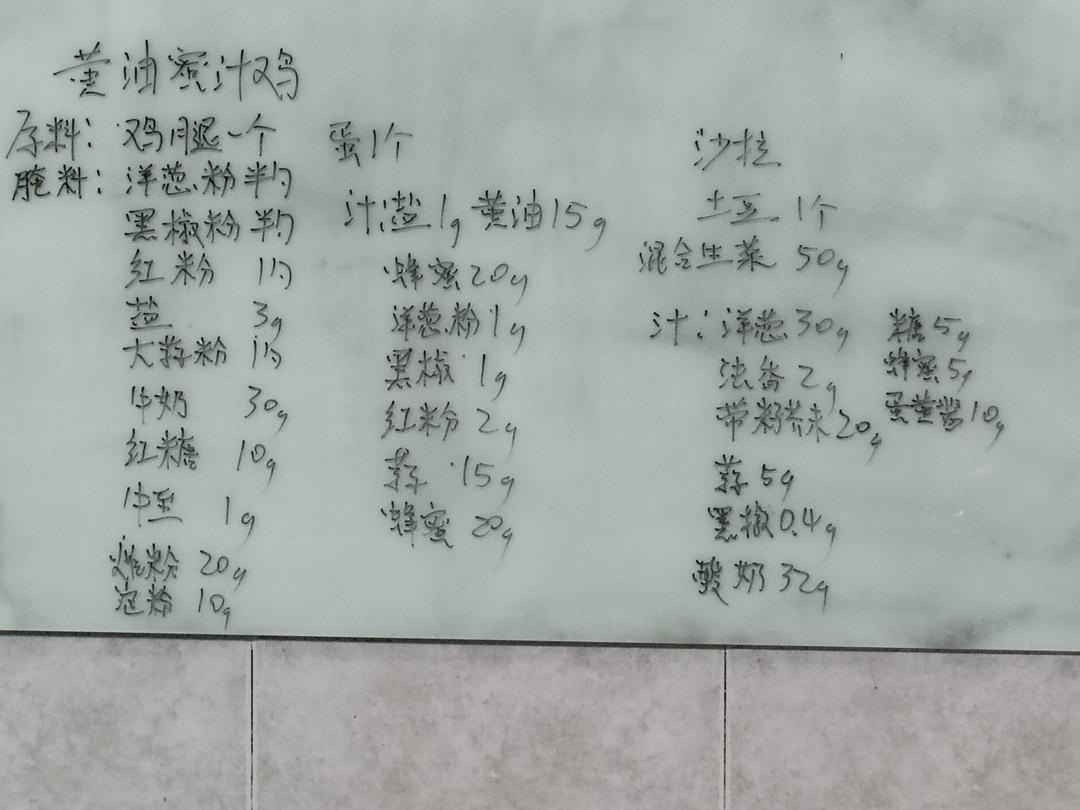 黄油蜜汁鸡
原料：鸡腿一个
腌料：洋葱粉半勺
黑椒粉半勺
红粉 1勺
盐 3g
大蒜粉 1勺
牛奶 30g
红糖 10g
牛至 1g
粉 20g
粉 10g
蛋1个
汁：盐1g 黄油15g
蜂蜜20g
洋葱粉1g
黑椒1g
红粉2g
蒜15g
蜂蜜20g
沙拉
土豆 1个
混合生菜 50g
汁：洋葱30g
法香2g
带籽芥末20g
蒜5g
黑椒0.4g
酸奶32g
糖5g
蜂蜜5g
蛋黄酱10g